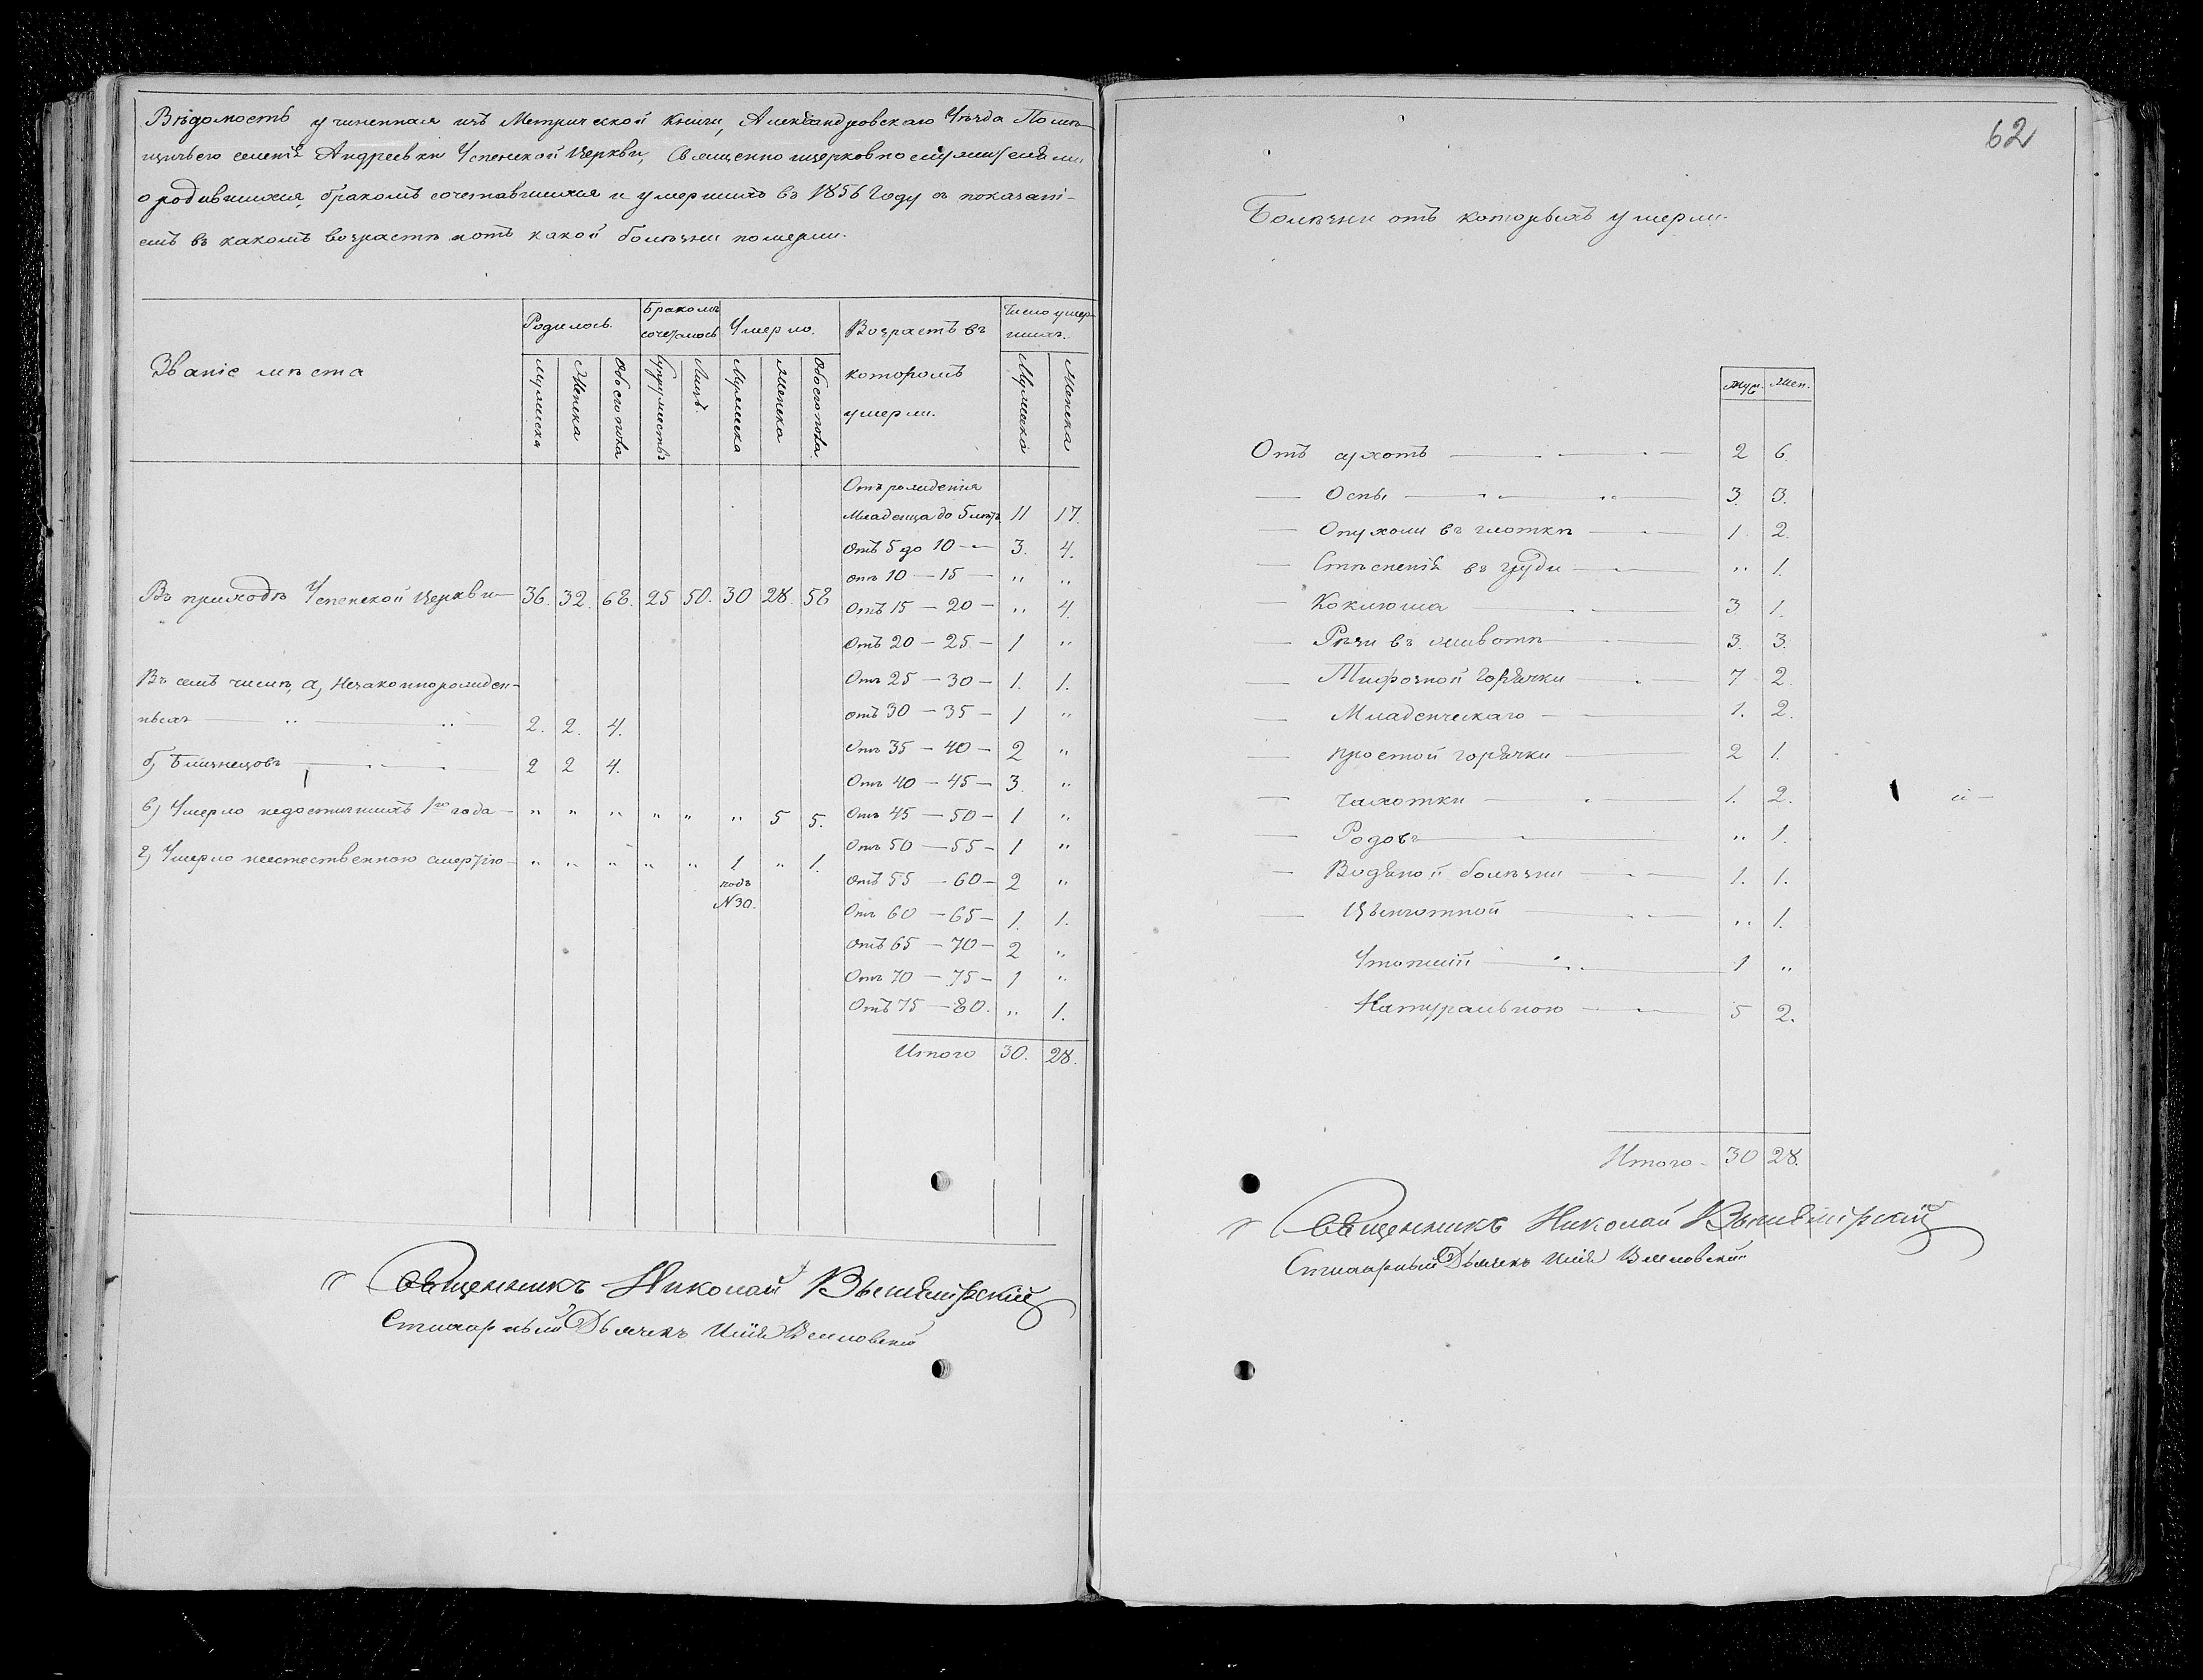 Вѣдомость учиненная изъ Метрической Книги, Александровскаго Уѣзда Помѣ-
щичьего селенія Андреевки Успенской Церкви, Священно и церковно служителями
о родившихся, бракомъ сочетавшихся и умершихъ въ 1856 Году съ показані-
емъ въ какомъ возрастѣ и отъ какой болѣзни померли.
Званіе мѣста
Родилось.
Бракомъ сочеталось
Умерло.
Возрастъ въ которомъ умерли.
Число умер-
шихъ.
Мужеска
Женска
Обоего пола
Супружествъ
Лицъ.
Мужеска
Женска
Обоего пола.
Мужеска
Женска
Отъ рожденія
Младенца до 5 лѣтъ 11 17.
Отъ 5 до 10 — 3. 4.
Отъ 10 — 15 — „ „
Въ приходѣ Успенской Церкви — 36. 32. 68. 25 50. 30 28. 58
Отъ 15 — 20 — „ 4.
Отъ 20 — 25 — 1 „
Отъ 25 — 30 — 1. 1.
Отъ 30 — 35 — 1 „
Отъ 35 — 40 — 2 „
Отъ 40 — 45 — 3. „
Отъ 45 — 50 — 1 „
Отъ 50 — 55 — 1 „
Отъ 55 — 60 — 2 „
Отъ 60 — 65 — 1. 1.
Отъ 65 — 70 — 2 „
Отъ 70 — 75 — 1 „
Отъ 75 — 80. „ 1.
Итого 30. 28.
Въ семъ числѣ, а, Незаконнорожден-
ныхъ — „ — „ — 2. 2. 4.
б, Близнецовъ — 2 2 4.
в) Умерло недостигшихъ 1го года — „ „ „ „ „ „ 5 5.
г) Умерло неестественною смертію — „ „ „ „ „ 1 „ 1.
подъ
N 30.
Священникъ Николай
Стихарный Дьячекъ Илія
62
Болѣзни отъ которыхъ умерли.
Муж. Жен.
Отъ сухотъ — 2 6.
— Оспы — 3. 3.
— Опухоли въ глоткѣ — 1. 2.
— Стѣсненія въ груди — „ 1.
— Коклюша — 3 1.
— Рѣзи въ животѣ — 3. 3.
— Тифозной Горячки — 7 2.
— Младенческаго — 1. 2.
— простой горячки — 2 1.
— Чахотки — 1. 2.
— Родовъ — „ 1.
— Водяной болѣзни — 1. 1.
— Цынготной — „ 1.
Утопшій — 1 „
Натуральною — 5 2.
Итого — 30 28.
Священникъ Николай
Стихарный Дьячекъ Илія